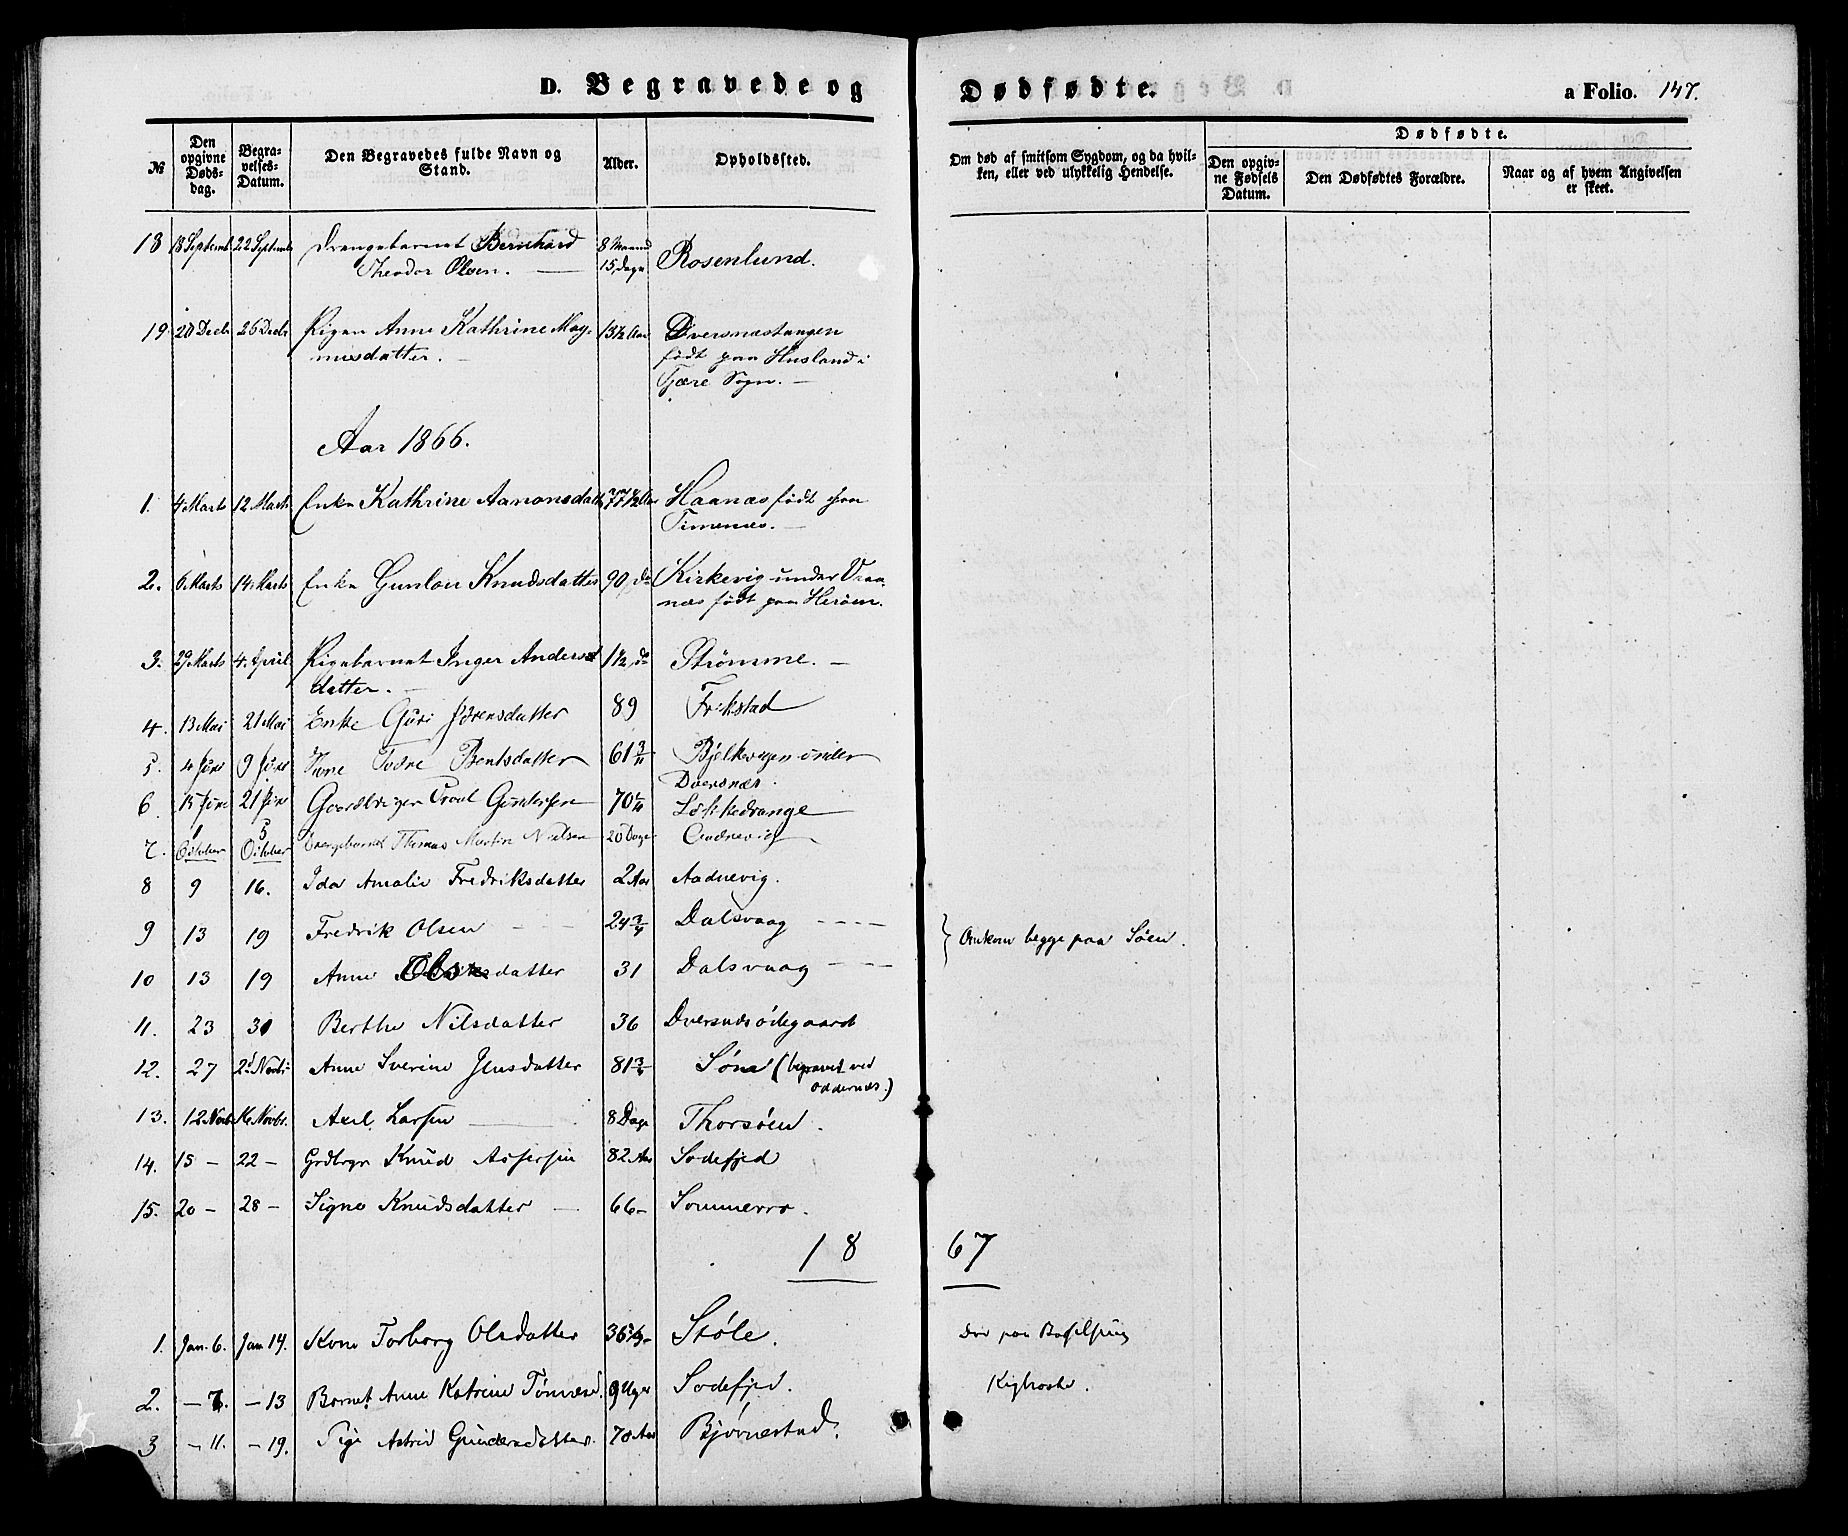 D. Begravede og Dødfødte. a Folio. 147.
№ Den opgivne Dødsdag. Begravelses-Datum. Den Begravedes fulde Navn og Stand. Alder. Opholdssted. Om død af smitsom Sygdom, og da hvilken, eller ved ulykkelig Hendelse. Dødfødte. Den opgivne Fødsels Datum. Den Dødfødtes Forældre. Naar og af hvem Angivelsen er skeet.
18 18 Septemb 22 Septemb Drengebarnet Bernhard 8 Maaned
Theodor Olsen. — 15 Dage Rosenlund.
19. 20 Decbr 26 Decbr Pigen Anne Kathrine Mag- 13½ Aar Dversnæstangen
nusdatter. — født paa Husland i
Tjære Sogn. —
Aar 1866.
1. 4 Marts 12 Marts Enke Kathrine Aamonsdatt 77½ Aar Haanæs født paa
Timenæs. —
2. 6 Marts 14 Marts Enke Gunlou Knudsdatter 90, do Kirkevig under Vraa-
næs født paa Herøen.
3. 29 Marts 4. April Pigebarnet Inger Anders 1½ do Strømme. —
datter. —
4. 13 Mai 21 Mai Enke Guri Jørensdatter 89 Frikstad
5. 4 Juni 9 Juni Kone Tvedte Bentsdatter 61 3/4 Bjelkevigen under
Dversnæs.
6. 15 Juni 21 Juni Gaardbruger Gundersen 70¼
7. 1 October 5 October Drengebarnet Thomas Martin Nielsen 20 Dage Audnevig
8 9 16. Ida Amalie Fredriksdatter 2 Aar Aadnevig.
9 13 19 Fredrik Olsen 24 3/4 Dalsvaag } Omkom begge paa Søen.
10 13 19 Anne Olsdatter 31 Dalsvaag
11. 23 31 Berthe Nilsdatter 36 Dversnæsødegaard
12. 27 2 Novbr Anne Sverine Jensdatter 81 3/4 Søm (begravet ved
Oddernæs.)
13. 12 Novb 16 Novbr. Axel Larsen — 8 Dage Thorsøen.
14. 15 — 22 — Grdbrgr Knud Assersen 82 Aar Sodefjed
15. 20 — 28 — Signe Knudsdatter — 66 — Sommerro.
18 67
1. Jan. 6. Jan 14. Kone Torborg Olsdatter 36 Støle. Død paa Barselseng
2. — 7. — 13 Barnet Anne Katrine Tønnesd. 9 Uger Sodefjed. Kighoste.
3 — 11. — 19. Pige Astrid Gundersdatter. 70 Aar Bjørnestad.